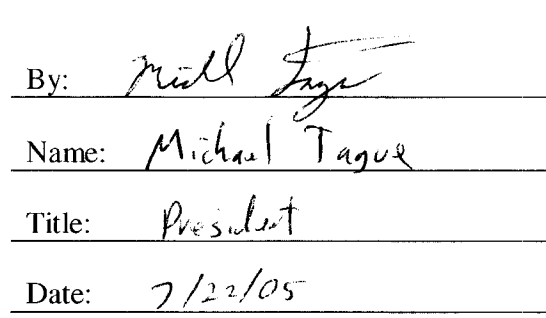 By: Michael Tague
Name: Michael Tague
Title: President
Date: 7/22/05